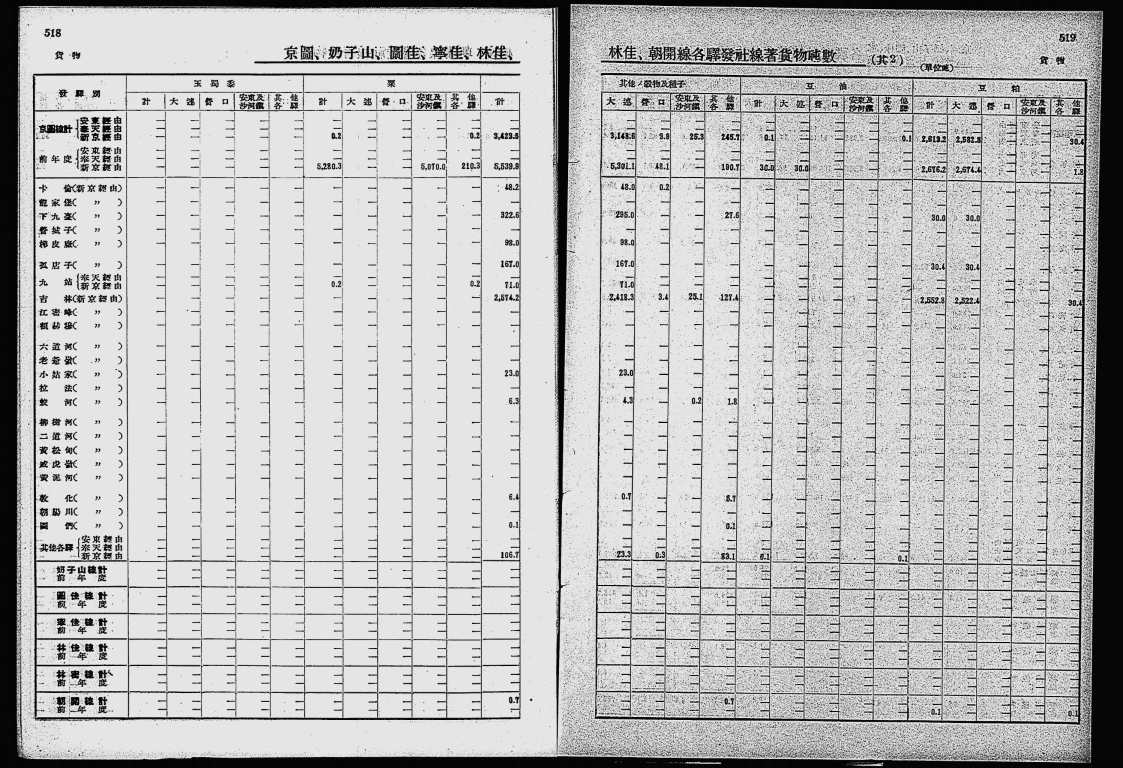 518
貨物
京圖、奶子山、圖佳、寧佳、林佳、
發驛別 玉蜀黍 粟
計 大連 營口 安東及沙河鎭 其他各驛 計 大連 營口 安東及沙河鎭 其他各驛 計
京圖線計 安東經由 — — — — — — — — — —
奉天經由 — — — — — — — — — —
新京經由 — — — — — 0.2 — — — 0.2 3,423.5
前年度 安東經由 — — — — — — — — — —
奉天經由 — — — — — — — — — —
新京經由 — — — — — 5,280.3 — — 5,070.0 210.3 5,539.8
卡倫(新京經由) — — — — — — — — — — 48.2
龍家堡( 〃 ) — — — — — — — — — — —
下九臺( 〃 ) — — — — — — — — — — 322.6
營城子( 〃 ) — — — — — — — — — — —
樺皮廠( 〃 ) — — — — — — — — — — 98.0
孤店子( 〃 ) — — — — — — — — — — 167.0
九站 奉天經由 — — — — — — — — — — —
新京經由 — — — — — 0.2 — — — 0.2 71.0
吉林(新京經由) — — — — — — — — — — 2,574.2
江密峰( 〃 ) — — — — — — — — — — —
額赫穆( 〃 ) — — — — — — — — — — —
六道河( 〃 ) — — — — — — — — — — —
老爺嶺( 〃 ) — — — — — — — — — — —
小姑家( 〃 ) — — — — — — — — — — 23.0
拉法( 〃 ) — — — — — — — — — — —
蛟河( 〃 ) — — — — — — — — — — 6.3
柳樹河( 〃 ) — — — — — — — — — — —
二道河( 〃 ) — — — — — — — — — — —
黃松甸( 〃 ) — — — — — — — — — — —
威虎嶺( 〃 ) — — — — — — — — — — —
黃泥河( 〃 ) — — — — — — — — — — —
敦化( 〃 ) — — — — — — — — — — 6.4
朝陽川( 〃 ) — — — — — — — — — — —
圖們( 〃 ) — — — — — — — — — — 0.1
其他各驛 安東經由 — — — — — — — — — — —
奉天經由 — — — — — — — — — — —
新京經由 — — — — — — — — — — 106.7
奶子山線計 — — — — — — — — — — —
前年度 — — — — — — — — — — —
圖佳線計 — — — — — — — — — — —
前年度 — — — — — — — — — — —
寧佳線計 — — — — — — — — — — —
前年度 — — — — — — — — — — —
林佳線計 — — — — — — — — — — —
前年度 — — — — — — — — — — —
林密線計 — — — — — — — — — — —
前年度 — — — — — — — — — — —
朝開線計 — — — — — — — — — — 0.7
前年度 — — — — — — — — — — —
519
貨物
林佳、朝開線各驛發社線著貨物噸數 (其2)
(單位噸)
其他ノ穀物及種子 豆油 豆粕
大連 營口 安東及沙河鎭 其他各驛 計 大連 營口 安東及沙河鎭 其他各驛 計 大連 營口 安東及沙河鎭 其他各驛
3,148.6 3.8 25.3 245.7 0.1 — — — 0.1 2,613.2 2,582.8 — — 30.4
5,301.1 48.1 — 190.7 30.0 30.0 — — — 2,676.2 2,674.4 — — 1.8
48.0 0.2 — — — — — — — — — — — —
295.0 — — 27.6 — — — — — 30.0 30.0 — — —
98.0 — — — — — — — — — — — — —
167.0 — — — — — — — — 30.4 30.4 — — —
71.0 — — — — — — — — — — — — —
2,418.3 3.4 25.1 127.4 — — — — — 2,552.8 2,522.4 — — 30.4
23.0 — — — — — — — — — — — — —
4.3 — 0.2 1.8 — — — — — — — — — —
0.7 — — 5.7 — — — — — — — — — —
— — — 0.1 — — — — — — — — — —
23.3 0.3 — 83.1 0.1 — — — 0.1 — — — — —
— — — 0.7 — — — — — — — — — —
— — — — — — — — — 0.1 — — — 0.1